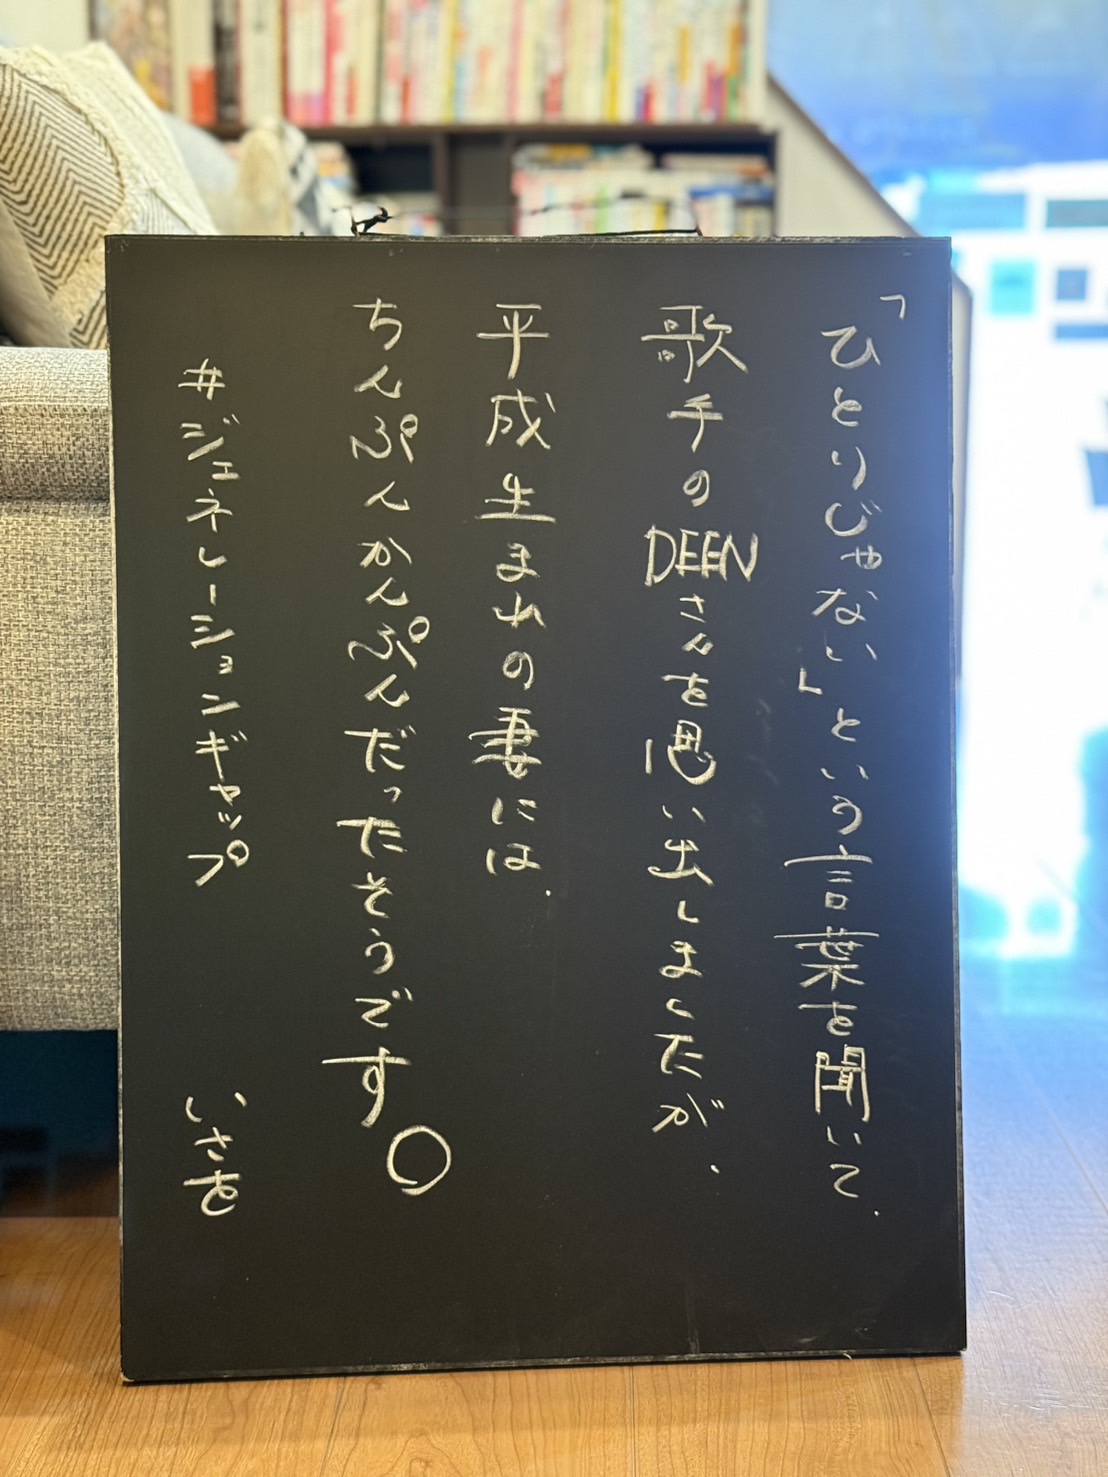 「ひとりじゃない」という言葉を聞いて、
歌手のDEENさんを思い出しましたが、
平成生まれの妻には、
ちんぷんかんぷんだったそうです。
#ジェネレーションギャップ
いさを